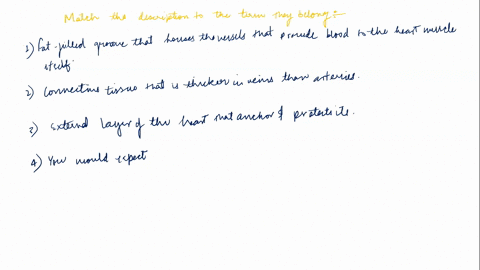 Match the discription to the term they belong :-
1) Fat-filled groove that houses the vessels that provide blood to the heart muscle
itself.
2) Connective tissue that is thicker in veins than arteries.
3) External layer of the heart that anchor & protects it.
4) You would expect